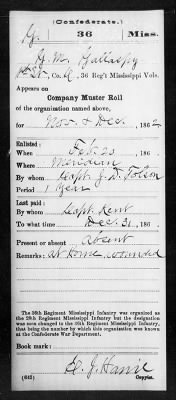 (Confederate.)
G. 36 Miss.
G. M. Gallaspy
Co. G, 36 Reg't Mississippi Vols.
Appears on
Company Muster Roll
of the organization named above,
for Nov. & Dec., 1862.
Enlisted:
When Feb. 23, 186
Where Meridian
By whom Capt. J. D. Tolson
Period 1 Year
Last paid:
By whom Capt. Kent
To what time Dec. 31, 186
Present or absent Absent
Remarks: At Home wounded
The 36th Regiment Mississippi Infantry was organized as
the 28th Regiment Mississippi Infantry but the designation
was soon changed to the 36th Regiment Mississippi Infantry,
that being the number by which this organization was known at
the Confederate War Department.
Book mark:
(642)
Copyist.